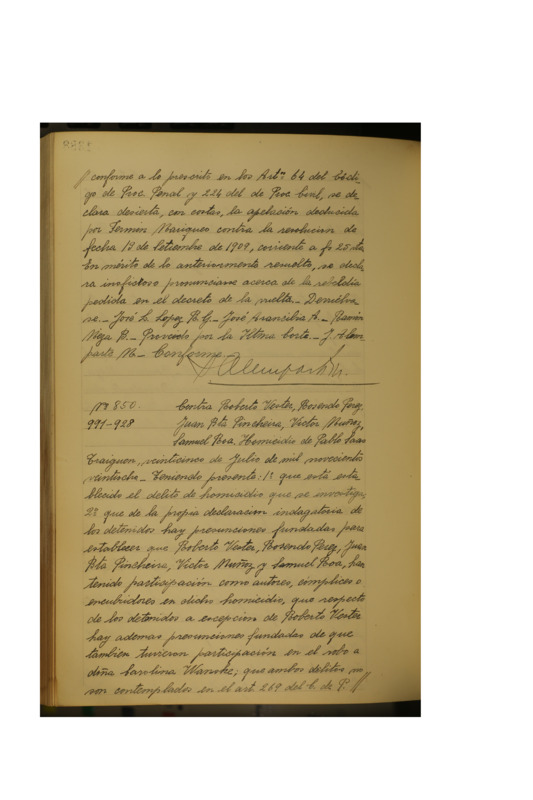 conforme a lo prescrito en los Artos 64 del Códi-
go de Proc. Penal y 224 del de Proc Civil, se de-
clara desierta, con costas, la apelación deducida
por Fermin Manqueo contra la resolucion de
fecha 12 de Setiembre de 1909, corriente a fs 25 vta
En mérito de lo anteriormente resuelto, se decla-
ra inoficioso pronunciarse acerca de la rebeldia
pedida en el decreto de la vuelta._ Devuélva-
se._ José L. Lopez R. G._ José Aransibia A._ Ramón
Vega B._ Proveido por la Iltma Corte._ J. Alem-
parte M._ Conforme.
J Alemparte M.
Nº 850. Contra Roberto Venter, Rosendo Perez
991-928 Juan Bta Pincheira, Victor Muñoz,
Samuel Roa. Homicidio de Pablo Saas
Traiguen, veinticinco de Julio de mil novecientos
veintiocho._ Teniendo presente: 1º que está esta-
blecido el delito de homicidio que se investiga;
2º que de la propia declaracion indagatoria de
los detenidos hay presunciones fundadas para
establecer que Roberto Venter, Rosendo Perez, Juan
Bta Pincheira, Victor Muñoz y Samuel Roa, han
tenido participación como autores, cómplices o
encubridores en dicho homicidio, que respecto
de los detenidos a escepcion de Roberto Venter
hay ademas presunciones fundadas de que
tambien tuvieron participación en el robo a
doña Carolina Wanske; que ambos delitos
son contemplados en el art. 269 del C. de P.